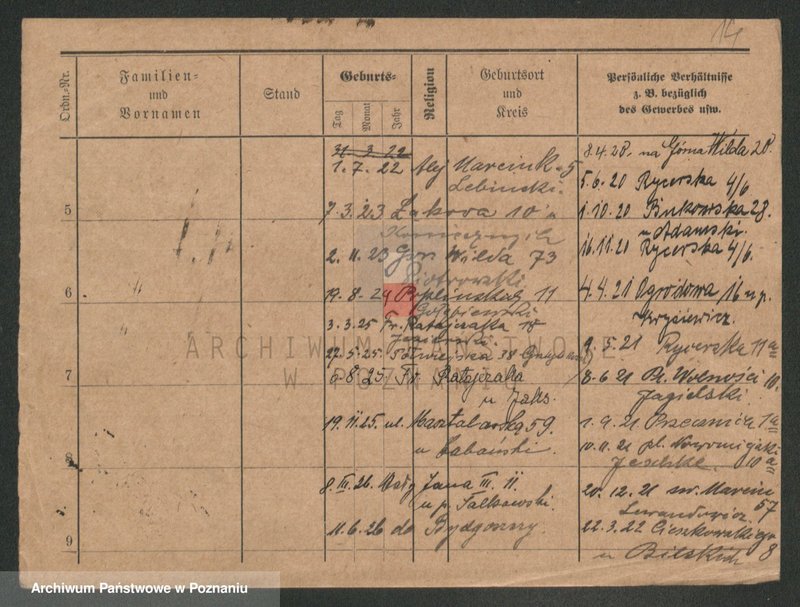 14
Ordn.-Nr.
Familien-
und
Vornamen
Stand
Geburts-
Tag
Monat
Jahr
Religion
Geburtsort
und
Kreis
Persönliche Verhältnisse
z. B. bezüglich
des Gewerbes usw.
31.3.22
1.7.22 Alej Marcink. 5
Lebinski.
5
7.3.23 Łąkowa 10 u
2.11.23 Gór Wilda 73
Piotrowski
6
19.8.24 11
3.3.25 Fr. Ratajczaka 18
27.5.25. Półwiejska 38
7
6.8.25 Fr. Ratajczaka
u Jaks.
19.11.25. ul. Masztalarską 59.
u Łabański.
8
8.III.26. Jana III. 11
u p. Falkowski.
11.6.26 do Bydgoszczy.
9
8.4.20. na Górna Wilda 20.
5.6.20 Rycerska 4/6
1.10.20 Bukowska 28.
u Adamski.
16.11.20 Rycerska 4/6.
4.4.21 Ogrodowa 16 u p.
Krysiewicz.
9.5.21 Rycerska 11a
8.6.21 Pl. Wolności 10.
Jagielski.
1.9.21 Przecznica 1a
10.11.21 pl. Nowomiejski
Jeschke. 10a
20.12.21 św. Marcin
57
Lewandowicz.
22.3.22 Cieszkowskiego
8
u Bilskich
ARCHIWUM PAŃSTWOWE
W POZNANIU
Archiwum Państwowe w Poznaniu